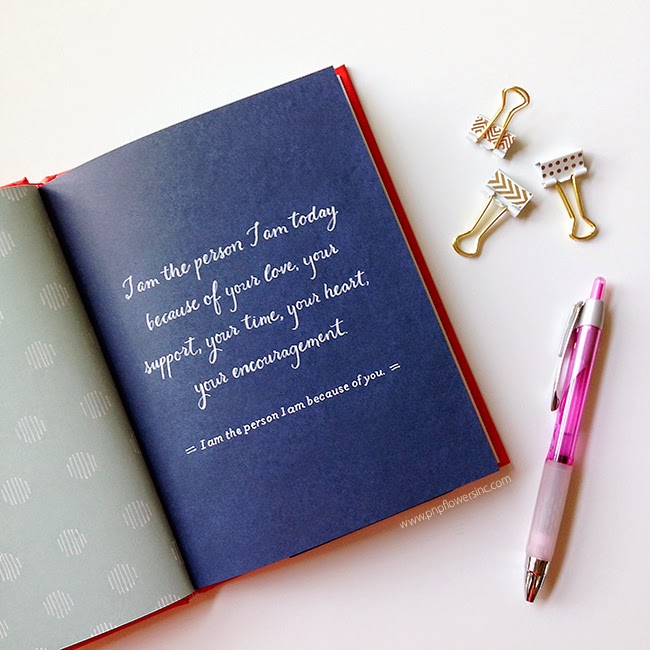 I am the person I am today
because of your love, your
support, your time, your heart,
your encouragement.
= I am the person I am because of you. =
www.pnpflowersinc.com